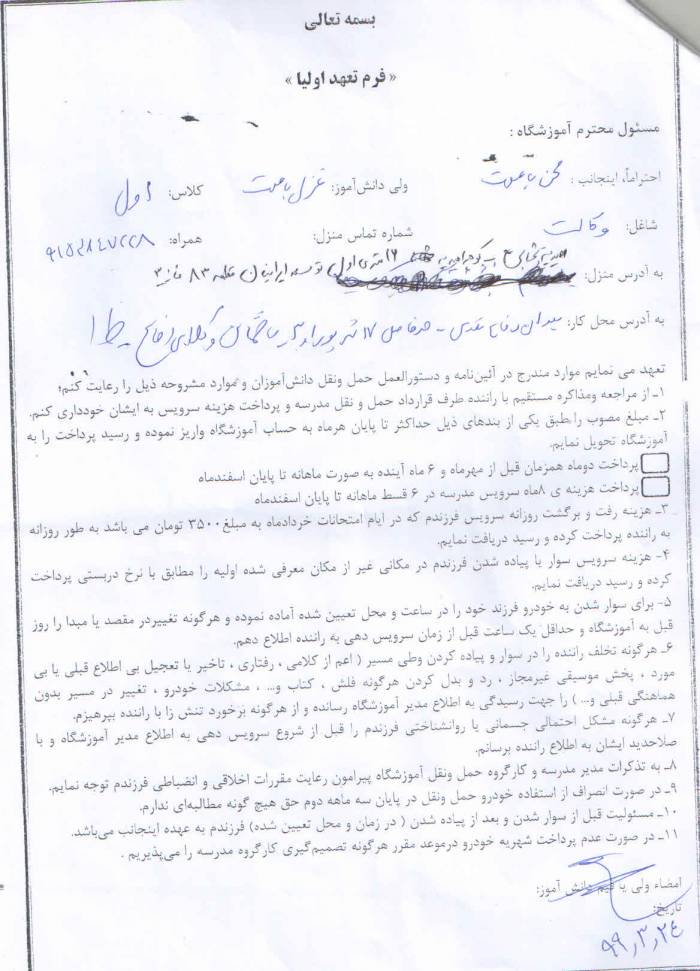 بسمه تعالی
« فرم تعهد اولیا »
مسئول محترم آموزشگاه :
احتراماً، اینجانب : ولی دانش‌آموز: غزل کلاس: اول
شاغل: وکالت شماره تماس منزل: همراه:
به آدرس منزل:
به آدرس محل کار: میدان دفاع مقدس - حدفاصل ۱۷
تعهد می نمایم موارد مندرج در آئین‌نامه و دستورالعمل حمل ونقل دانش‌آموزان و موارد مشروحه ذیل را رعایت کنم؛
۱- از مراجعه ومذاکره مستقیم با راننده طرف قرارداد حمل و نقل مدرسه و پرداخت هزینه سرویس به ایشان خودداری کنم.
۲- مبلغ مصوب را طبق یکی از بندهای ذیل حداکثر تا پایان هرماه به حساب آموزشگاه واریز نموده و رسید پرداخت را به
آموزشگاه تحویل نمایم.
پرداخت دوماه همزمان قبل از مهرماه و ۶ ماه آینده به صورت ماهانه تا پایان اسفندماه
پرداخت هزینه ی ۸ماه سرویس مدرسه در ۶ قسط ماهانه تا پایان اسفندماه
۳- هزینه رفت و برگشت روزانه سرویس فرزندم که در ایام امتحانات خردادماه به مبلغ ۳۵۰۰ تومان می باشد به طور روزانه
به راننده پرداخت کرده و رسید دریافت نمایم.
۴- هزینه سرویس سوار یا پیاده شدن فرزندم در مکانی غیر از مکان معرفی شده اولیه را مطابق با نرخ دربستی پرداخت
کرده و رسید دریافت نمایم.
۵- برای سوار شدن به خودرو فرزند خود را در ساعت و محل تعیین شده آماده نموده و هرگونه تغییردر مقصد یا مبدا را روز
قبل به آموزشگاه و حداقل یک ساعت قبل از زمان سرویس دهی به راننده اطلاع دهم.
۶- هرگونه تخلف راننده را در سوار و پیاده کردن وطی مسیر ( اعم از کلامی ، رفتاری ، تاخیر یا تعجیل بی اطلاع قبلی یا بی
مورد ، پخش موسیقی غیرمجاز ، رد و بدل کردن هرگونه فلش ، کتاب و... ، مشکلات خودرو ، تغییر در مسیر بدون
هماهنگی قبلی و... ) را جهت رسیدگی به اطلاع مدیر آموزشگاه رسانده و از هرگونه برخورد تنش زا با راننده بپرهیزم.
۷- هرگونه مشکل احتمالی جسمانی یا روانشناختی فرزندم را قبل از شروع سرویس دهی به اطلاع مدیر آموزشگاه و با
صلاحدید ایشان به اطلاع راننده برسانم.
۸- به تذکرات مدیر مدرسه و کارگروه حمل ونقل آموزشگاه پیرامون رعایت مقررات اخلاقی و انضباطی فرزندم توجه نمایم.
۹- در صورت انصراف از استفاده خودرو حمل ونقل در پایان سه ماهه دوم حق هیچ گونه مطالبه‌ای ندارم.
۱۰- مسئولیت قبل از سوار شدن و بعد از پیاده شدن ( در زمان و محل تعیین شده) فرزندم به عهده اینجانب می‌باشد.
۱۱- در صورت عدم پرداخت شهریه خودرو درموعد مقرر هرگونه تصمیم‌گیری کارگروه مدرسه را می‌پذیریم .
امضاء ولی یا قیم دانش آموز:
تاریخ:
۹۹,۳,۲۴